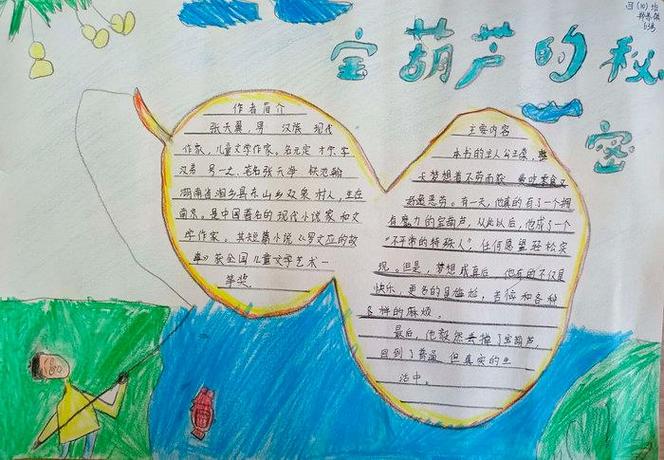 宝葫芦的秘
密
四(10)班
作者简介
张天翼,男 汉族 现代
作家,儿童文学作家。名元定 字
汉弟 号一之 笔名张天净 铁池翰
湖南省湘乡县东山乡双泉村人,生在
南京。是中国著名的现代小说家和文
学作家。其短篇小说《罗文应的故
事》获全国儿童文学艺术一
等奖。
主要内容
本书的主人公王葆,
天梦想着不劳而获
有一天,他真的有了一个拥
有魔力的宝葫芦,从此以后,他成了一个
“不平常的特殊人”任何愿望轻松实
现。但是,梦想成真后 他有的不仅是
快乐,更多的是尴尬,苦恼和各种
各样的麻烦。
最后,他毅然丢掉了宝葫芦,
回到了普通 但真实的生
活中。